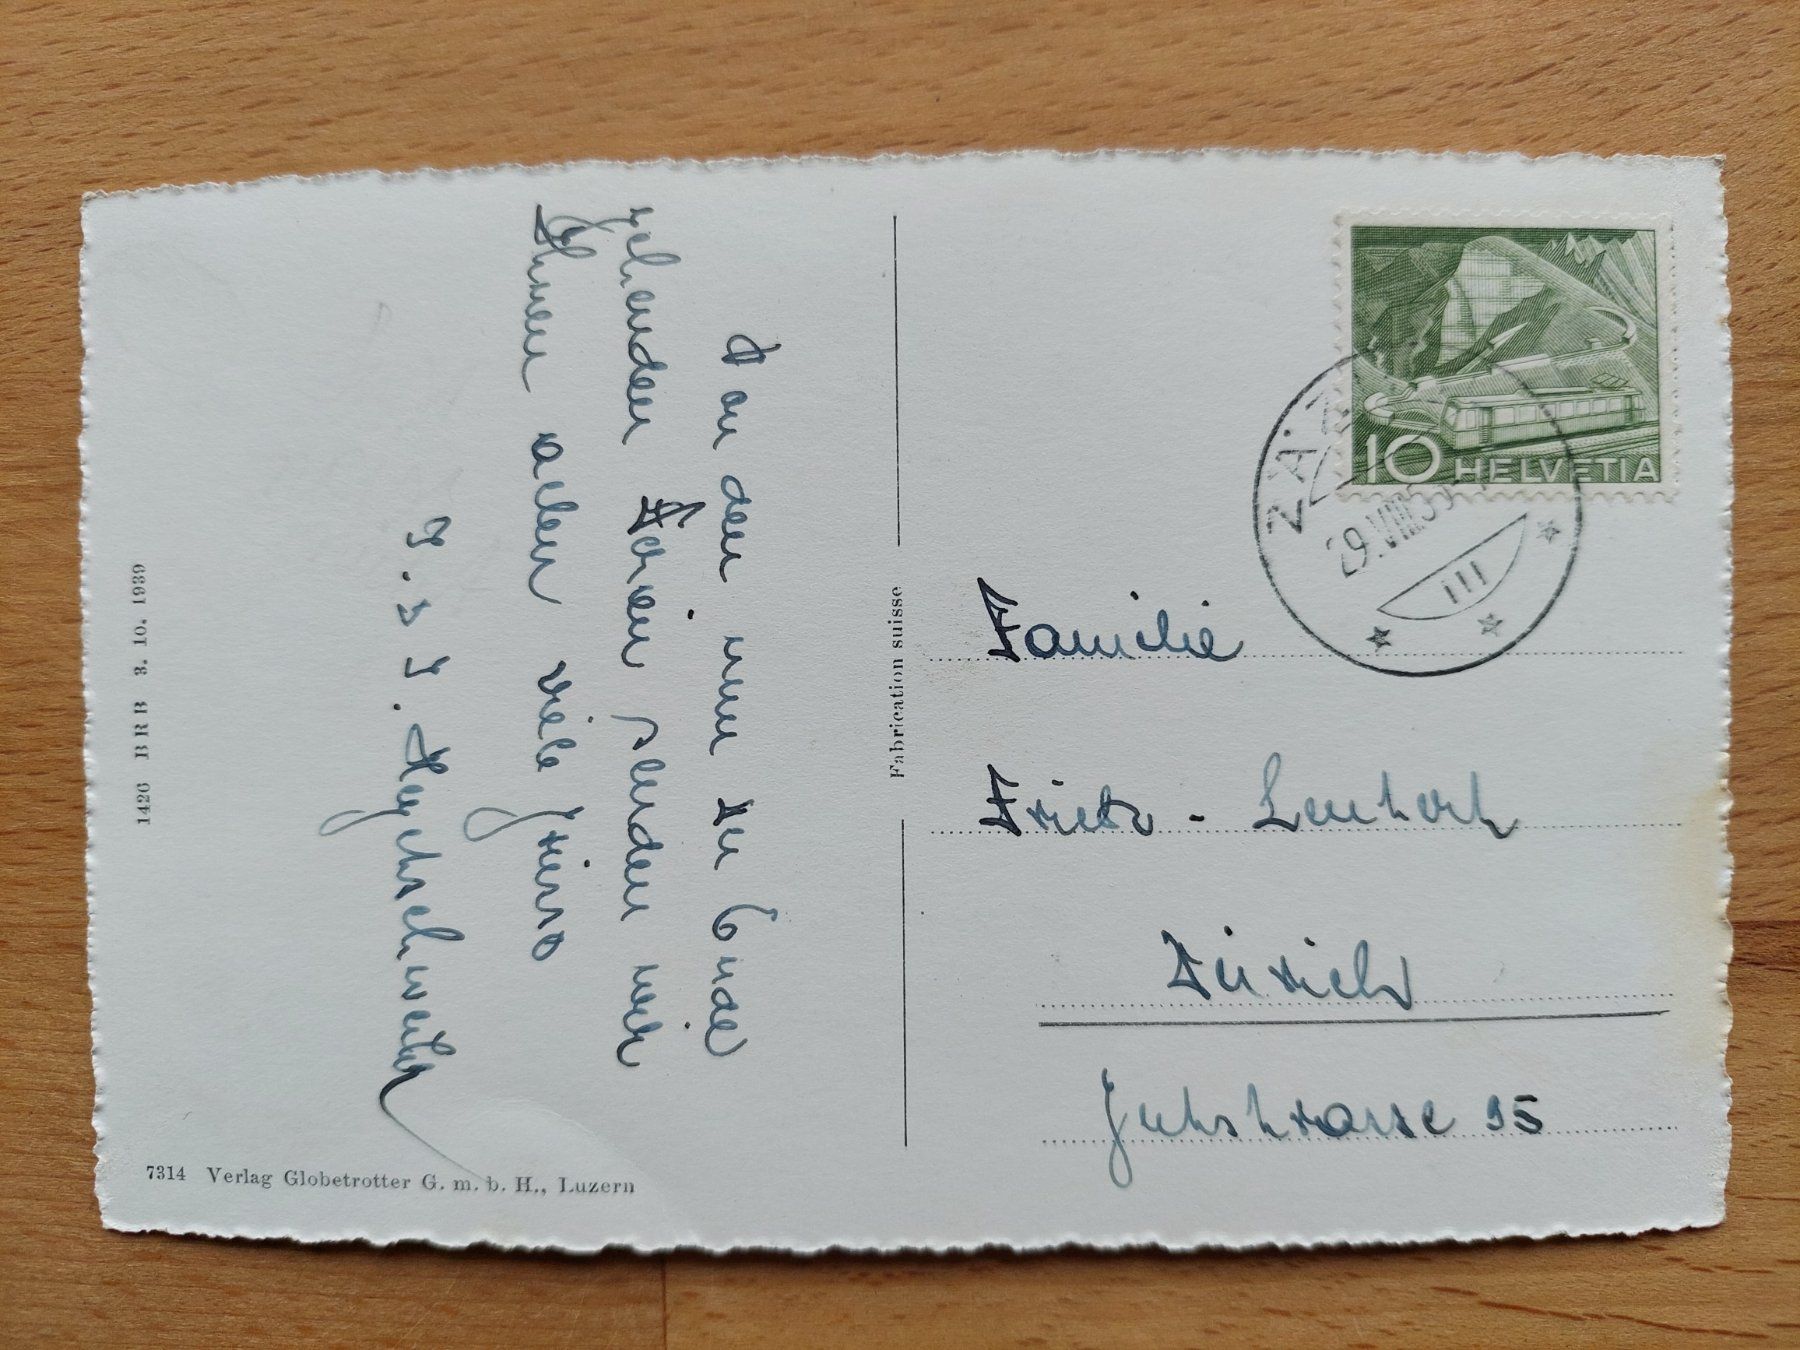 Von den nun zu Ende
gehenden Ferien senden wir
Ihnen allen viele Grüsse
Hugentschweiler
1426 BRB 3. 10. 1939
7314 Verlag Globetrotter G. m. b. H., Luzern
Fabrication suisse
10 HELVETIA
ZÄZ
29.VIII.55
Familie
Frietz - Leuthork
Zürich
Gutstrasse 95